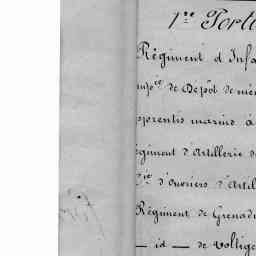 1re Porte
Régiment d'Infa
mpie de Dépôt de mê
pprentis marins à
égiment d'Artillerie d
Cie d'ouvriers d'Artil
Régiment de Grenadi
— id — de voltige